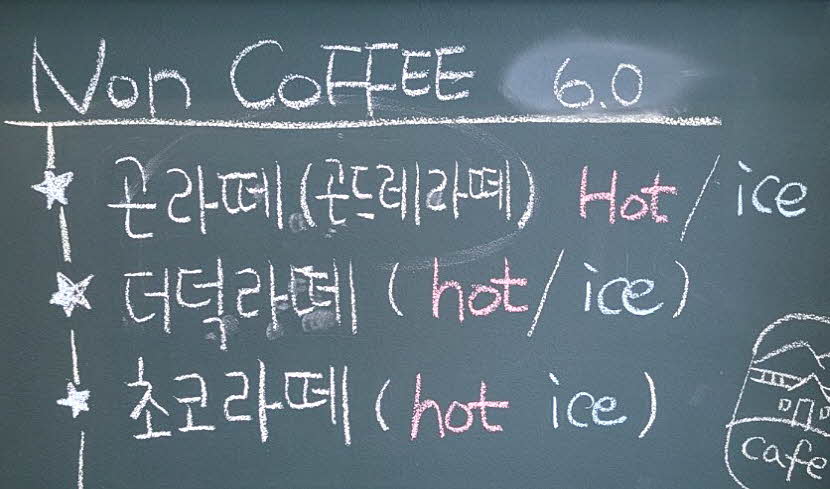 Non COFFEE 6.0
곤라떼 (곤드레라떼) Hot / ice
더덕라떼 (hot / ice)
초코라떼 (hot ice)
cafe